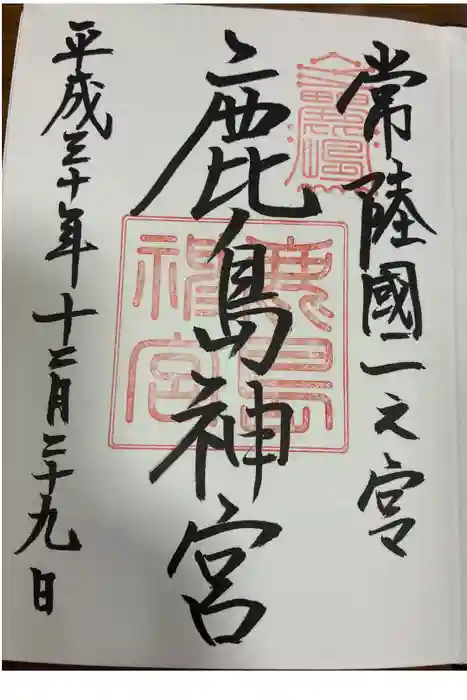 常陸國一之宮
鹿島神宮
平成三十年十二月二十九日
鹿島
神宮